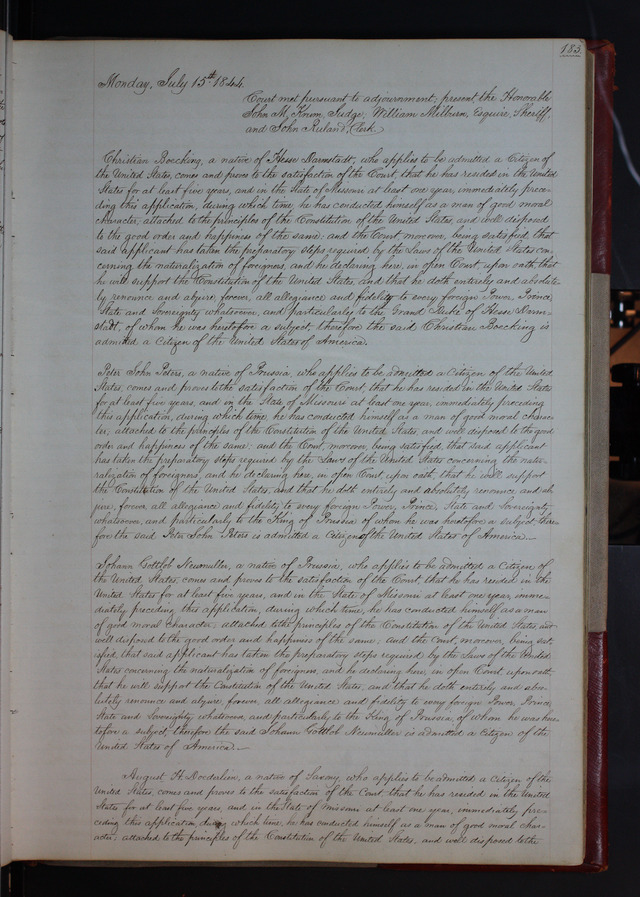 185.
Monday, July 15th 1844.
Court met pursuant to adjournment; present, the Honorable
John M. Krum, Judge; William Milburn, Esquire, Sheriff,
and John Ruland, Clerk.
Christian Boecking, a native of Hesse Darmstadt, who applies to be admitted a Citizen of
the United States, comes and proves to the satisfaction of the Court, that he has resided in the United
States for at least five years, and in the State of Missouri at least one year, immediately prece-
ding this application, during which time, he has conducted himself as a man of good moral
character, attached to the principles of the Constitution of the United States, and well disposed
to the good order and happiness of the same, and the Court, moreover, being satisfied, that
said applicant has taken the preparatory steps required by the Laws of the United States con
cerning the naturalization of foreigners, and he declaring here, in open Court, upon oath, that
he will support the Constitution of the United States, and that he doth entirely and absolute-
ly renounce and abjure, forever, all allegiance and fidelity to every foreign Power, Prince,
State and Sovereignty whatsoever, and particularly to the Grand Duke of Hesse Darm-
stadt, of whom he was heretofore a subject; therefore the said Christian Boecking is
admitted a Citizen of the United States of America.
Peter John Peters, a native of Prussia, who applies to be admitted a Citizen of the United
States, comes and proves to the satisfaction of the Court, that he has resided in the United States
for at least five years, and in the State of Missouri at least one year, immediately preceding
this application, during which time, he has conducted himself as a man of good moral charac-
ter, attached to the principles of the Constitution of the United States, and well disposed to the good
order and happiness of the same, and the Court, moreover, being satisfied, that said applicant
has taken the preparatory steps required by the Laws of the United States concerning the natu-
ralization of foreigners, and he declaring here, in open Court, upon oath, that he will support
the Constitution of the United States, and that he doth entirely and absolutely renounce and ab
jure, forever, all allegiance and fidelity to every foreign Power, Prince, State and Sovereignty
whatsoever, and particularly to the King of Prussia, of whom he was heretofore a subject, there-
fore the said Peter John Peters is admitted a Citizen of the United States of America.
Johann Gottlob Neumuller, a native of Prussia, who applies to be admitted a Citizen of
the United States, comes and proves to the satisfaction of the Court, that he has resided in the
United States for at least five years, and in the State of Missouri at least one year, imme-
diately preceding this application, during which time, he has conducted himself as a man
of good moral character, attached to the principles of the Constitution of the United States, and
well disposed to the good order and happiness of the same, and the Court, moreover, being sat-
isfied, that said applicant has taken the preparatory steps required by the Laws of the United
States concerning the naturalization of foreigners, and he declaring here, in open Court, upon oath,
that he will support the Constitution of the United States, and that he doth entirely and abso-
lutely renounce and abjure, forever, all allegiance and fidelity to every foreign Power, Prince,
State and Sovereignty whatsoever, and particularly to the King of Prussia, of whom he was here-
tofore a subject, therefore the said Johann Gottlob Neumuller is admitted a Citizen of the
United States of America.
August H. Doedalien, a native of Saxony, who applies to be admitted a Citizen of the
United States, comes and proves to the satisfaction of the Court that he has resided in the United
States for at least five years, and in the State of Missouri at least one year, immediately pre-
ceding this application, during which time, he has conducted himself as a man of good moral char-
acter, attached to the principles of the Constitution of the United States, and well disposed to the